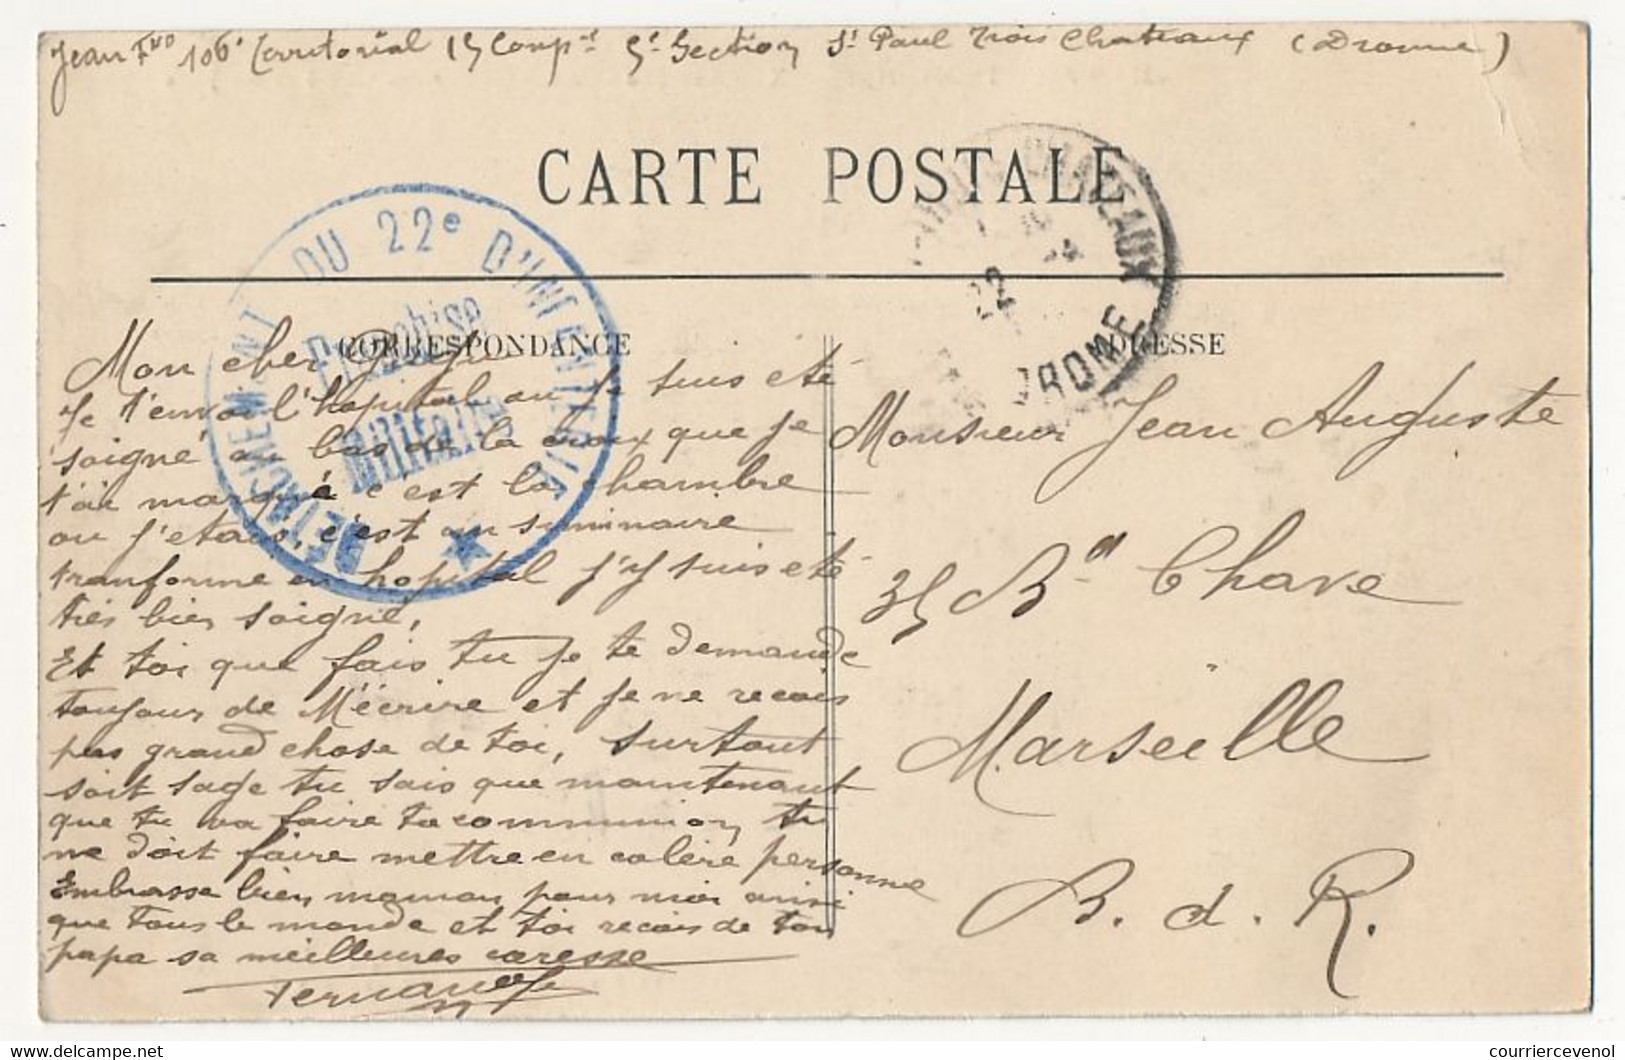 Jean Fno 106e Territorial 15 Compie 5e Section St Paul Trois Chateaux (Dromme)
CARTE POSTALE
DETACHEMENT DU 22e D'INFANTERIE
Franchise
Militaire
CHATEAUX
22
DROME
CORRESPONDANCE
ADRESSE
Mon cher
Je t'envoi l'hopital ou je suis été
soigné au bas de la croix que je
t'ai marqué c'est la chambre
ou j'etais, c'est un seminaire
tranforme en hopital j'y suis eté
tres bien soigné,
Et toi que fais tu je te demande
toujours de M'écrire et je ne recois
pas grand chose de toi, surtout
soit sage tu sais que maintenant
que tu va faire ta communion tu
ne doit faire mettre en colère personne
Embrasse bien maman pour moi ainsi
que tous le monde et toi recois de ton
papa sa meilleures caresse
Fernand
Monsieur Jean Auguste
35 Bd Chave
Marseille
B. d. R.
www.delcampe.net
courriercevenol